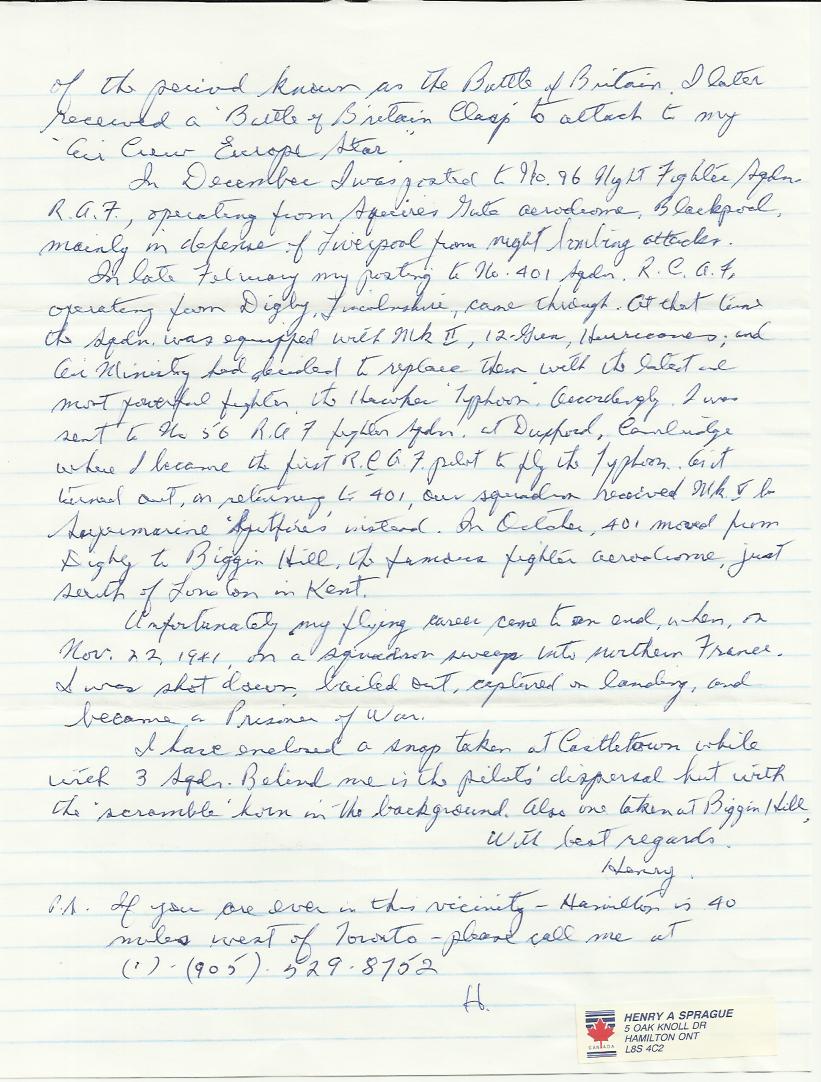 of the period known as the Battle of Britain. I later
received a "Battle of Britain Clasp" to attach to my
"Air Crew Europe Star"
In December I was posted to No. 96 Night Fighter Sqdn.
R.A.F., operating from Squires Gate aerodrome, Blackpool,
mainly in defense of Liverpool from night bombing attacks.
In late February my posting to No. 401 Sqdn. R.C.A.F.
operating from Digby, Lincolnshire, came through. At that time
the Sqdn. was equipped with Mk II, 12-Gun, Hurricanes; and
Air Ministry had decided to replace them with the latest and
most powerful fighter, the Hawker 'Typhoon'. Accordingly I was
sent to No 56 R.A.F fighter Sqdn. at Duxford, Cambridge
where I became the first R.C.A.F. pilot to fly the Typhoon. As it
turned out, on returning to 401, our squadron received Mk V b
Supermarine 'Spitfires' instead. In October, 401 moved from
Digby to Biggin Hill, the famous fighter aerodrome, just
south of London in Kent.
Unfortunately my flying career came to an end, when, on
Nov. 22, 1941, on a squadron sweep into northern France.
I was shot down, bailed out, captured on landing, and
became a Prisoner of War.
I have enclosed a snap taken at Castletown while
with 3 Sqdn. Behind me is the pilots' dispersal hut with
the 'scramble' horn in the background. Also one taken at Biggin Hill.
With best regards.
Henry.
P.S. If you are ever in this vicinity - Hamilton is 40
miles west of Toronto - please call me at
(1)-(905)-529-8752
H.
HENRY A SPRAGUE
5 OAK KNOLL DR
HAMILTON ONT
L8S 4C2
CANADA